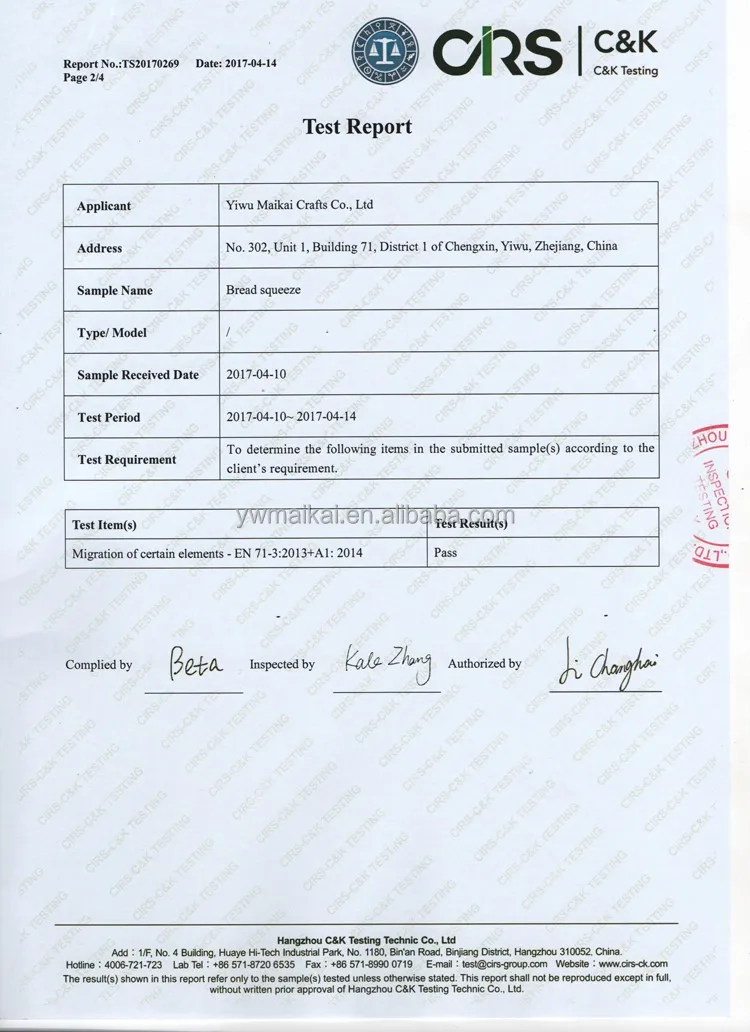 Report No.:TS20170269 Date: 2017-04-14
Page 2/4
CIRS C&K
C&K Testing
Test Report
Applicant Yiwu Maikai Crafts Co., Ltd
Address No. 302, Unit 1, Building 71, District 1 of Chengxin, Yiwu, Zhejiang, China
Sample Name Bread squeeze
Type/ Model /
Sample Received Date 2017-04-10
Test Period 2017-04-10~ 2017-04-14
Test Requirement To determine the following items in the submitted sample(s) according to the
client's requirement.
ZHOU
INSPECTION
TESTING
.,LTD.
ywmaikai.en.alibaba.com
Test Item(s) Test Result(s)
Migration of certain elements - EN 71-3:2013+A1: 2014 Pass
Complied by Beta Inspected by Kale Zhang Authorized by Li Changhai
Hangzhou C&K Testing Technic Co., Ltd
Add : 1/F, No. 4 Building, Huaye Hi-Tech Industrial Park, No. 1180, Bin'an Road, Binjiang District, Hangzhou 310052, China.
Hotline : 4006-721-723 Lab Tel : +86 571-8720 6535 Fax : +86 571-8990 0719 E-mail : test@cirs-group.com Website : www.cirs-ck.com
The result(s) shown in this report refer only to the sample(s) tested unless otherwise stated. This report shall not be reproduced except in full,
without written prior approval of Hangzhou C&K Testing Technic Co., Ltd.
CIRS-C&K TESTING